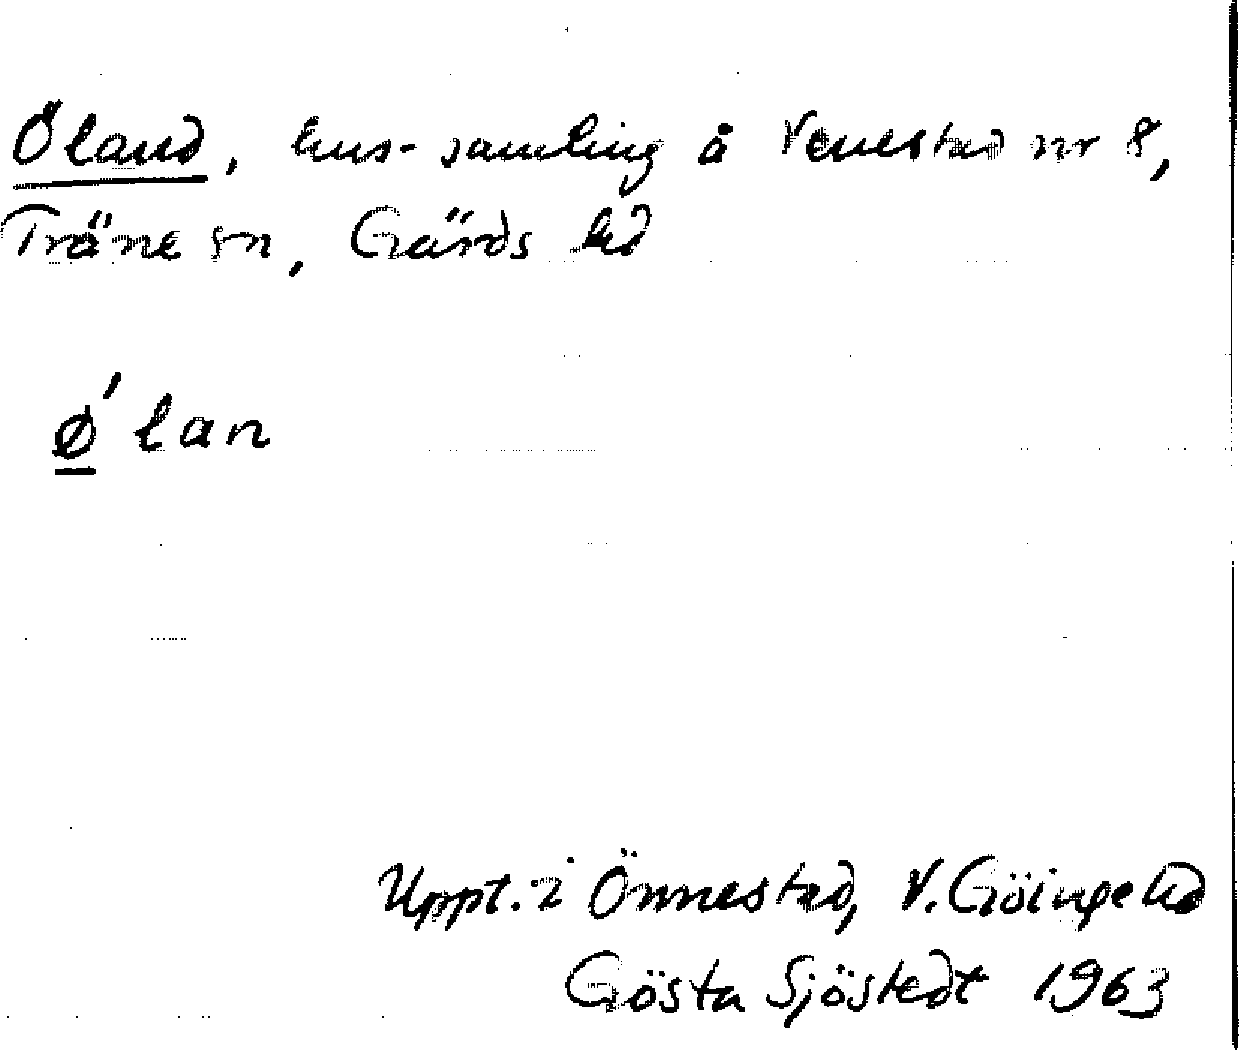 Öland, hus-samling å Venestad nr 8,
Träne sn, Gärds hd
ǿ lan
Uppt. i Önnestad, V. Göinge hd
Gösta Sjöstedt 1963